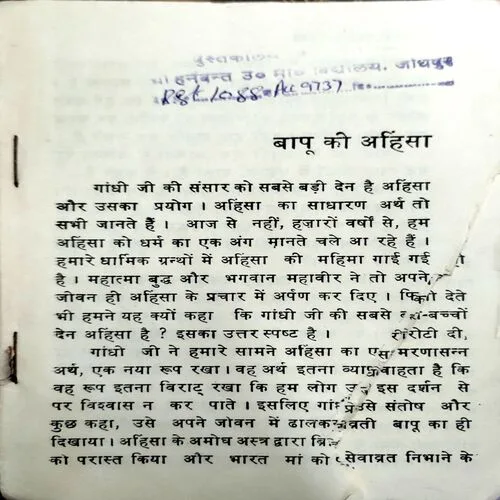 पुस्तकालय
श्री हनवन्त उ० मा० विद्यालय, जोधपुर
Acc 9737
बापू की अहिंसा
गांधी जी की संसार को सबसे बड़ी देन है अहिंसा
और उसका प्रयोग । अहिंसा का साधारण अर्थ तो
सभी जानते हैं । आज से नहीं, हज़ारों वर्षों से, हम
अहिंसा को धर्म का एक अंग मानते चले आ रहे हैं ।
हमारे धार्मिक ग्रन्थों में अहिंसा की महिमा गाई गई ही
है । महात्मा बुद्ध और भगवान महावीर ने तो अपने
जीवन ही अहिंसा के प्रचार में अर्पण कर दिए । देते
भी हमने यह क्यों कहा कि गांधी जी की सबसे -बच्चों
देन अहिंसा है ? इसका उत्तर स्पष्ट है । रोटी दी,
गांधी जी ने हमारे सामने अहिंसा का मरणासन्न
अर्थ, एक नया रूप रखा । वह अर्थ इतना चाहता है कि
वह रूप इतना विराट् रखा कि हम लोग इस दर्शन से
पर विश्वास न कर पाते । इसलिए उसे संतोष और
कुछ कहा, उसे अपने जीवन में ढालकर व्रती बापू का ही
दिखाया । अहिंसा के अमोघ अस्त्र द्वारा
को परास्त किया और भारत मां को सेवाव्रत निभाने के